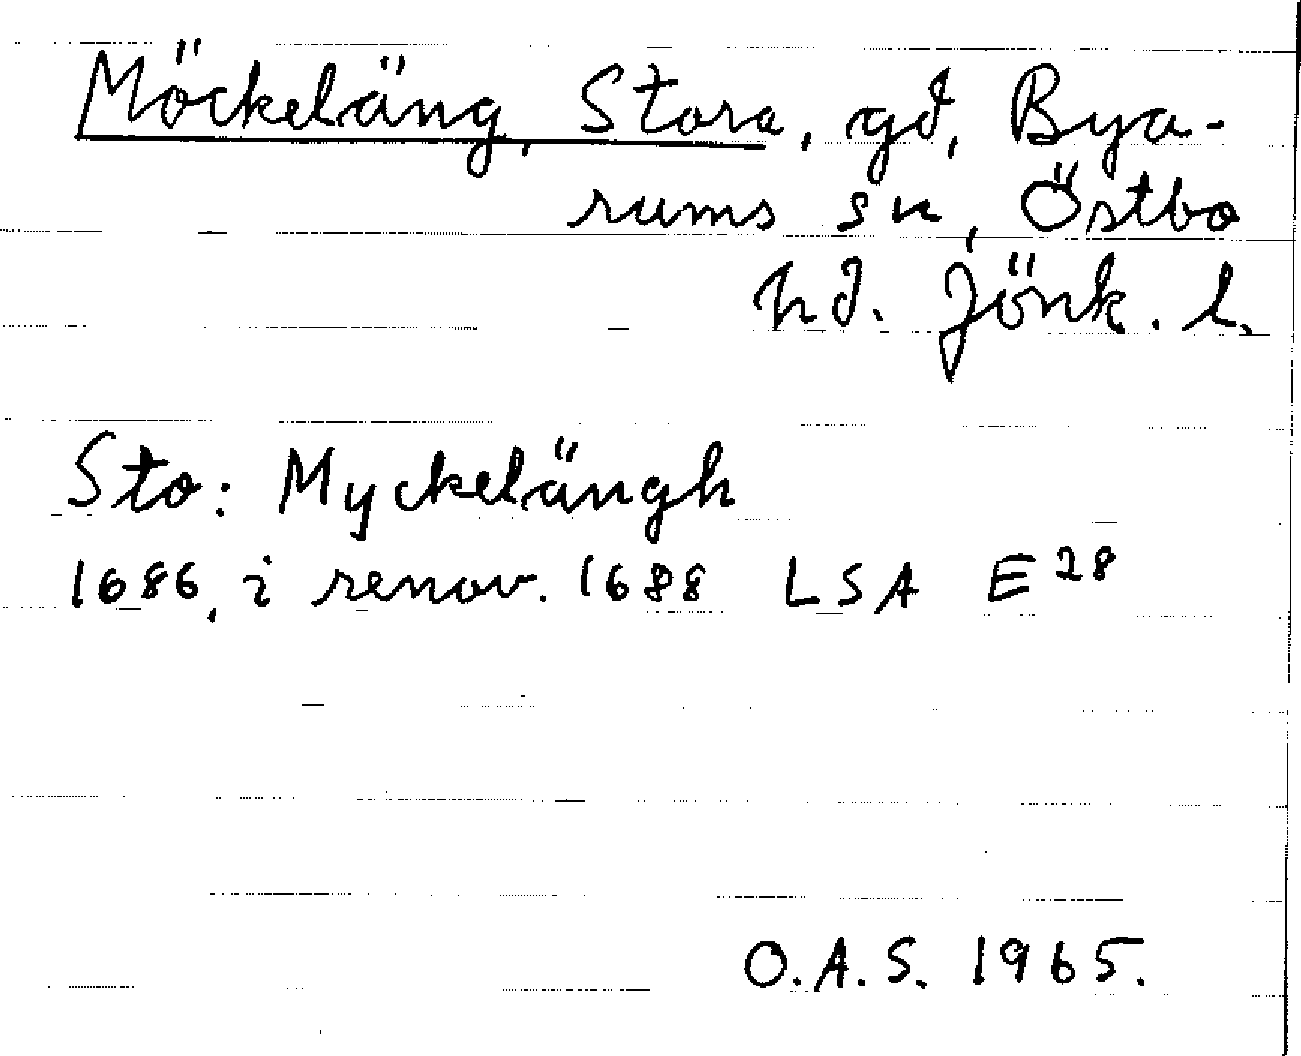 Möckeläng, Stora, gd, Bya-
rums sn, Östbo
hd. Jönk. l.
Sto: Myckelängh
1686, i renov. 1688 LSA E 28
O.A.S. 1965.